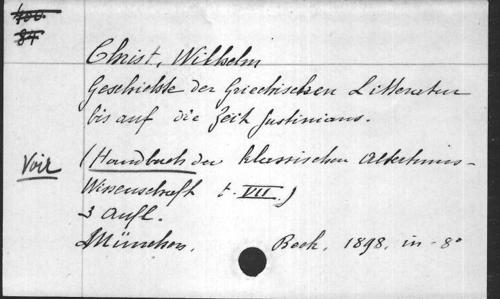 400
84
Christ, Wilhelm
Geschichte der Griechischen Litteratur
bis auf die Zeit Justinians.
Voir (Handbuch der klassischen Altertums-
Wissenschaft t. VII.)
3 Aufl.
München. Beck, 1898, in-8°